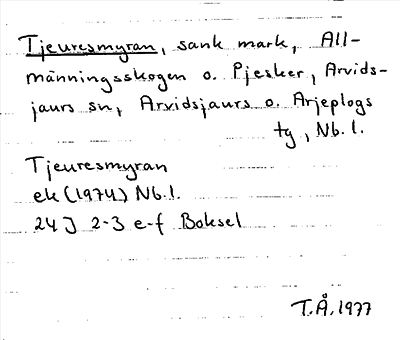 Tjeuresmyran, sank mark, All-
männingsskogen o. Pjesker, Arvids-
jaurs sn, Arvidsjaurs o. Arjeplogs
tg, Nb. l.
Tjeuresmyran
ek (1974) Nb. l.
24 J 2-3 e-f Boksel
T.Å. 1977